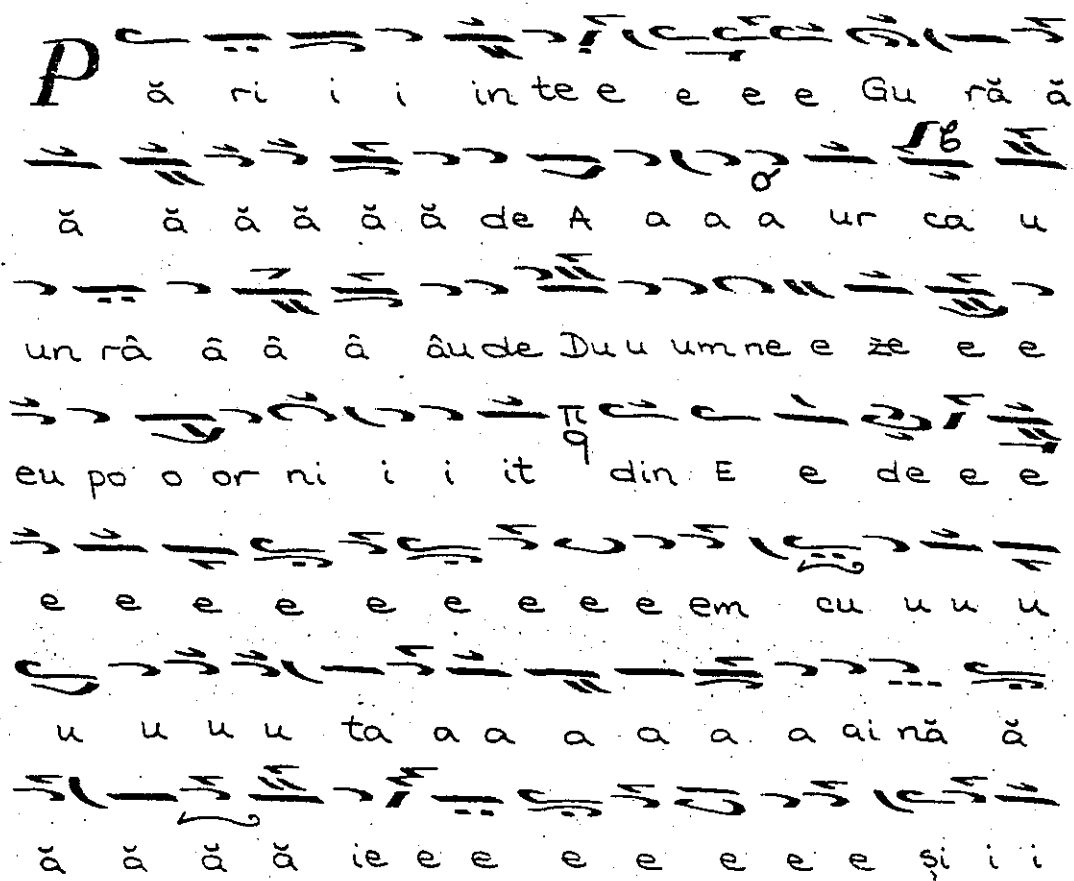 P ă ri i i in te e e e e Gu ră ă
ă ă ă ă ă ă de A a a a ur ca u
un râ â â â âu de Du u um ne e ze e e
eu po o or ni i i it π q din E e de e e
e e e e e e e e e em cu u u u
u u u u ta a a a a a a ai nă ă
ă ă ă ă ie e e e e e e e și i i